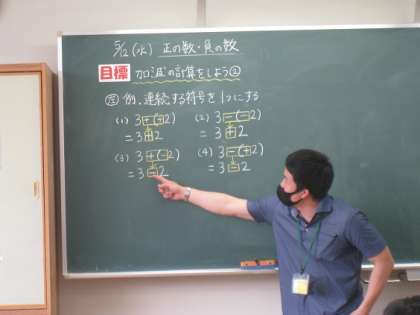 5/12(水) 正の数・負の数
目標 加減の計算をしよう②
例、連続する符号を1つにする
(1) 3+(+2) (2) 3-(-2)
=3+2 =3+2
(3) 3+(-2) (4) 3-(+2)
=3-2 =3-2